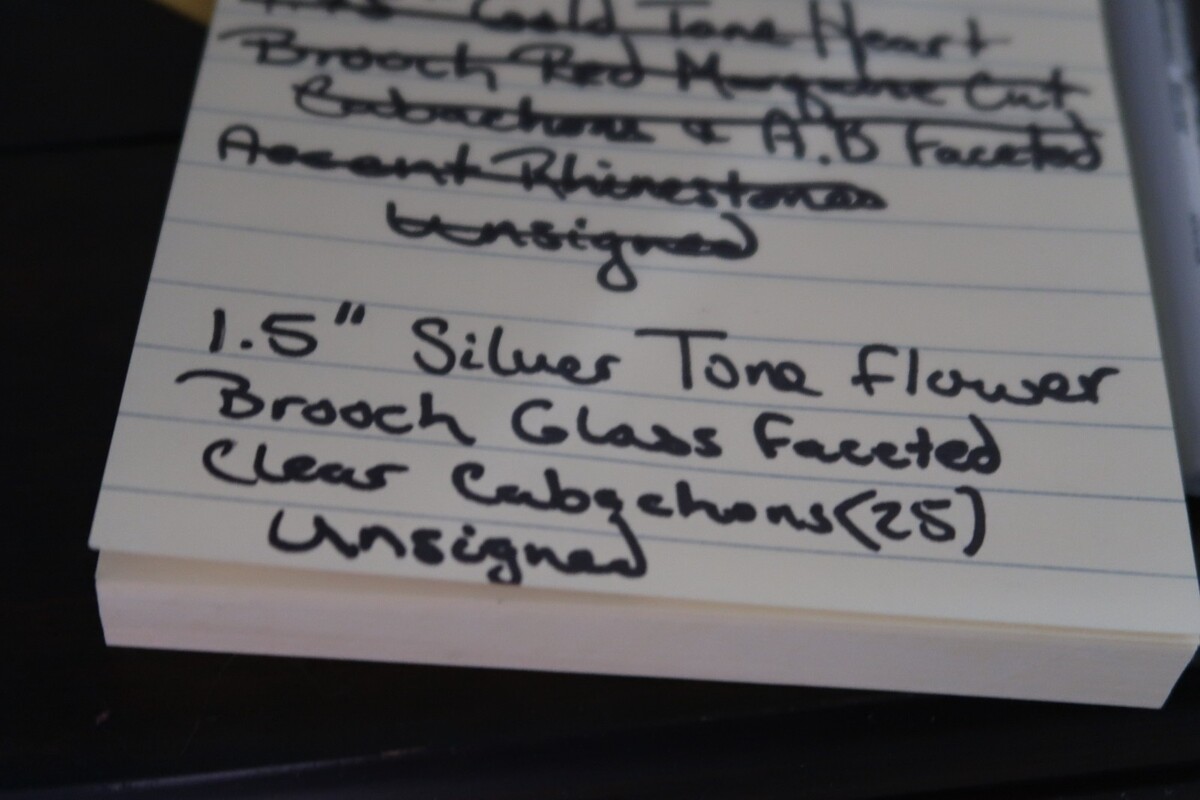 Gold Tone Heart
Brooch Red Marquise Cut
Cabachons & A.B Faceted
Accent Rhinestones
Unsigned
1.5" Silver Tone Flower
Brooch Glass Faceted
Clear Cabachons (25)
Unsigned